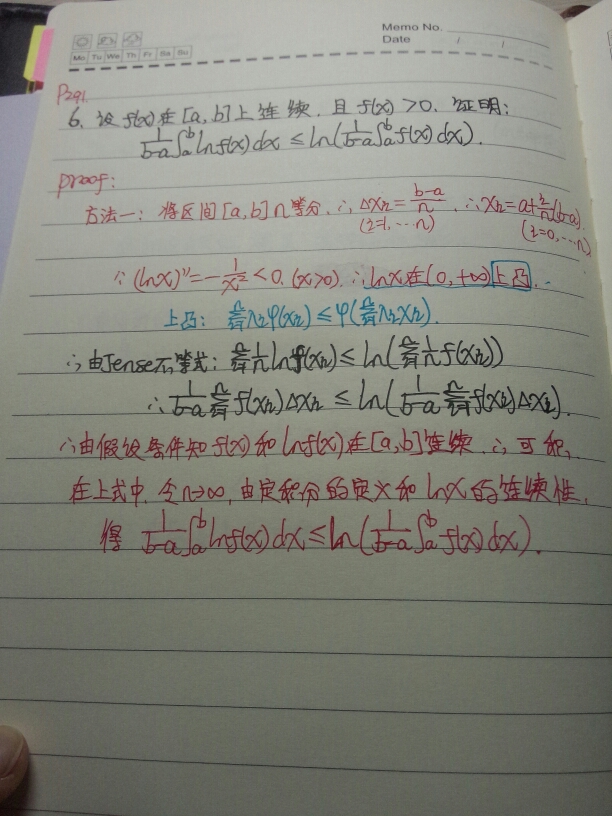 Memo No.
Date / /
Mo Tu We Th Fr Sa Su
P291.
6. 设 f(x) 在 [a, b] 上连续, 且 f(x) > 0. 证明:
1/(b-a) ∫_a^b ln f(x) dx ≤ ln( 1/(b-a) ∫_a^b f(x) dx ).
proof:
方法一: 将区间 [a, b] n 等分. ∴ Δx_i = (b-a)/n. ∴ x_i = a + i/n (b-a).
(i=1, ⋯ n) (i=0, ⋯ n)
∵ (ln x)'' = - 1/x² < 0. (x>0). ∴ ln x 在 (0, +∞) 上凸.
上凸: Σ_{i=1}^n λ_i φ(x_i) ≤ φ( Σ_{i=1}^n λ_i x_i ).
∴ 由 Jense 不等式: Σ_{i=1}^n 1/n ln f(x_i) ≤ ln( Σ_{i=1}^n 1/n f(x_i) )
∴ 1/(b-a) Σ_{i=1}^n f(x_i) Δx_i ≤ ln( 1/(b-a) Σ_{i=1}^n f(x_i) Δx_i ).
∴ 由假设条件知 f(x) 和 ln f(x) 在 [a, b] 连续. ∴ 可积,
在上式中, 令 n→∞, 由定积分的定义和 ln x 的连续性,
得 1/(b-a) ∫_a^b ln f(x) dx ≤ ln( 1/(b-a) ∫_a^b f(x) dx ).